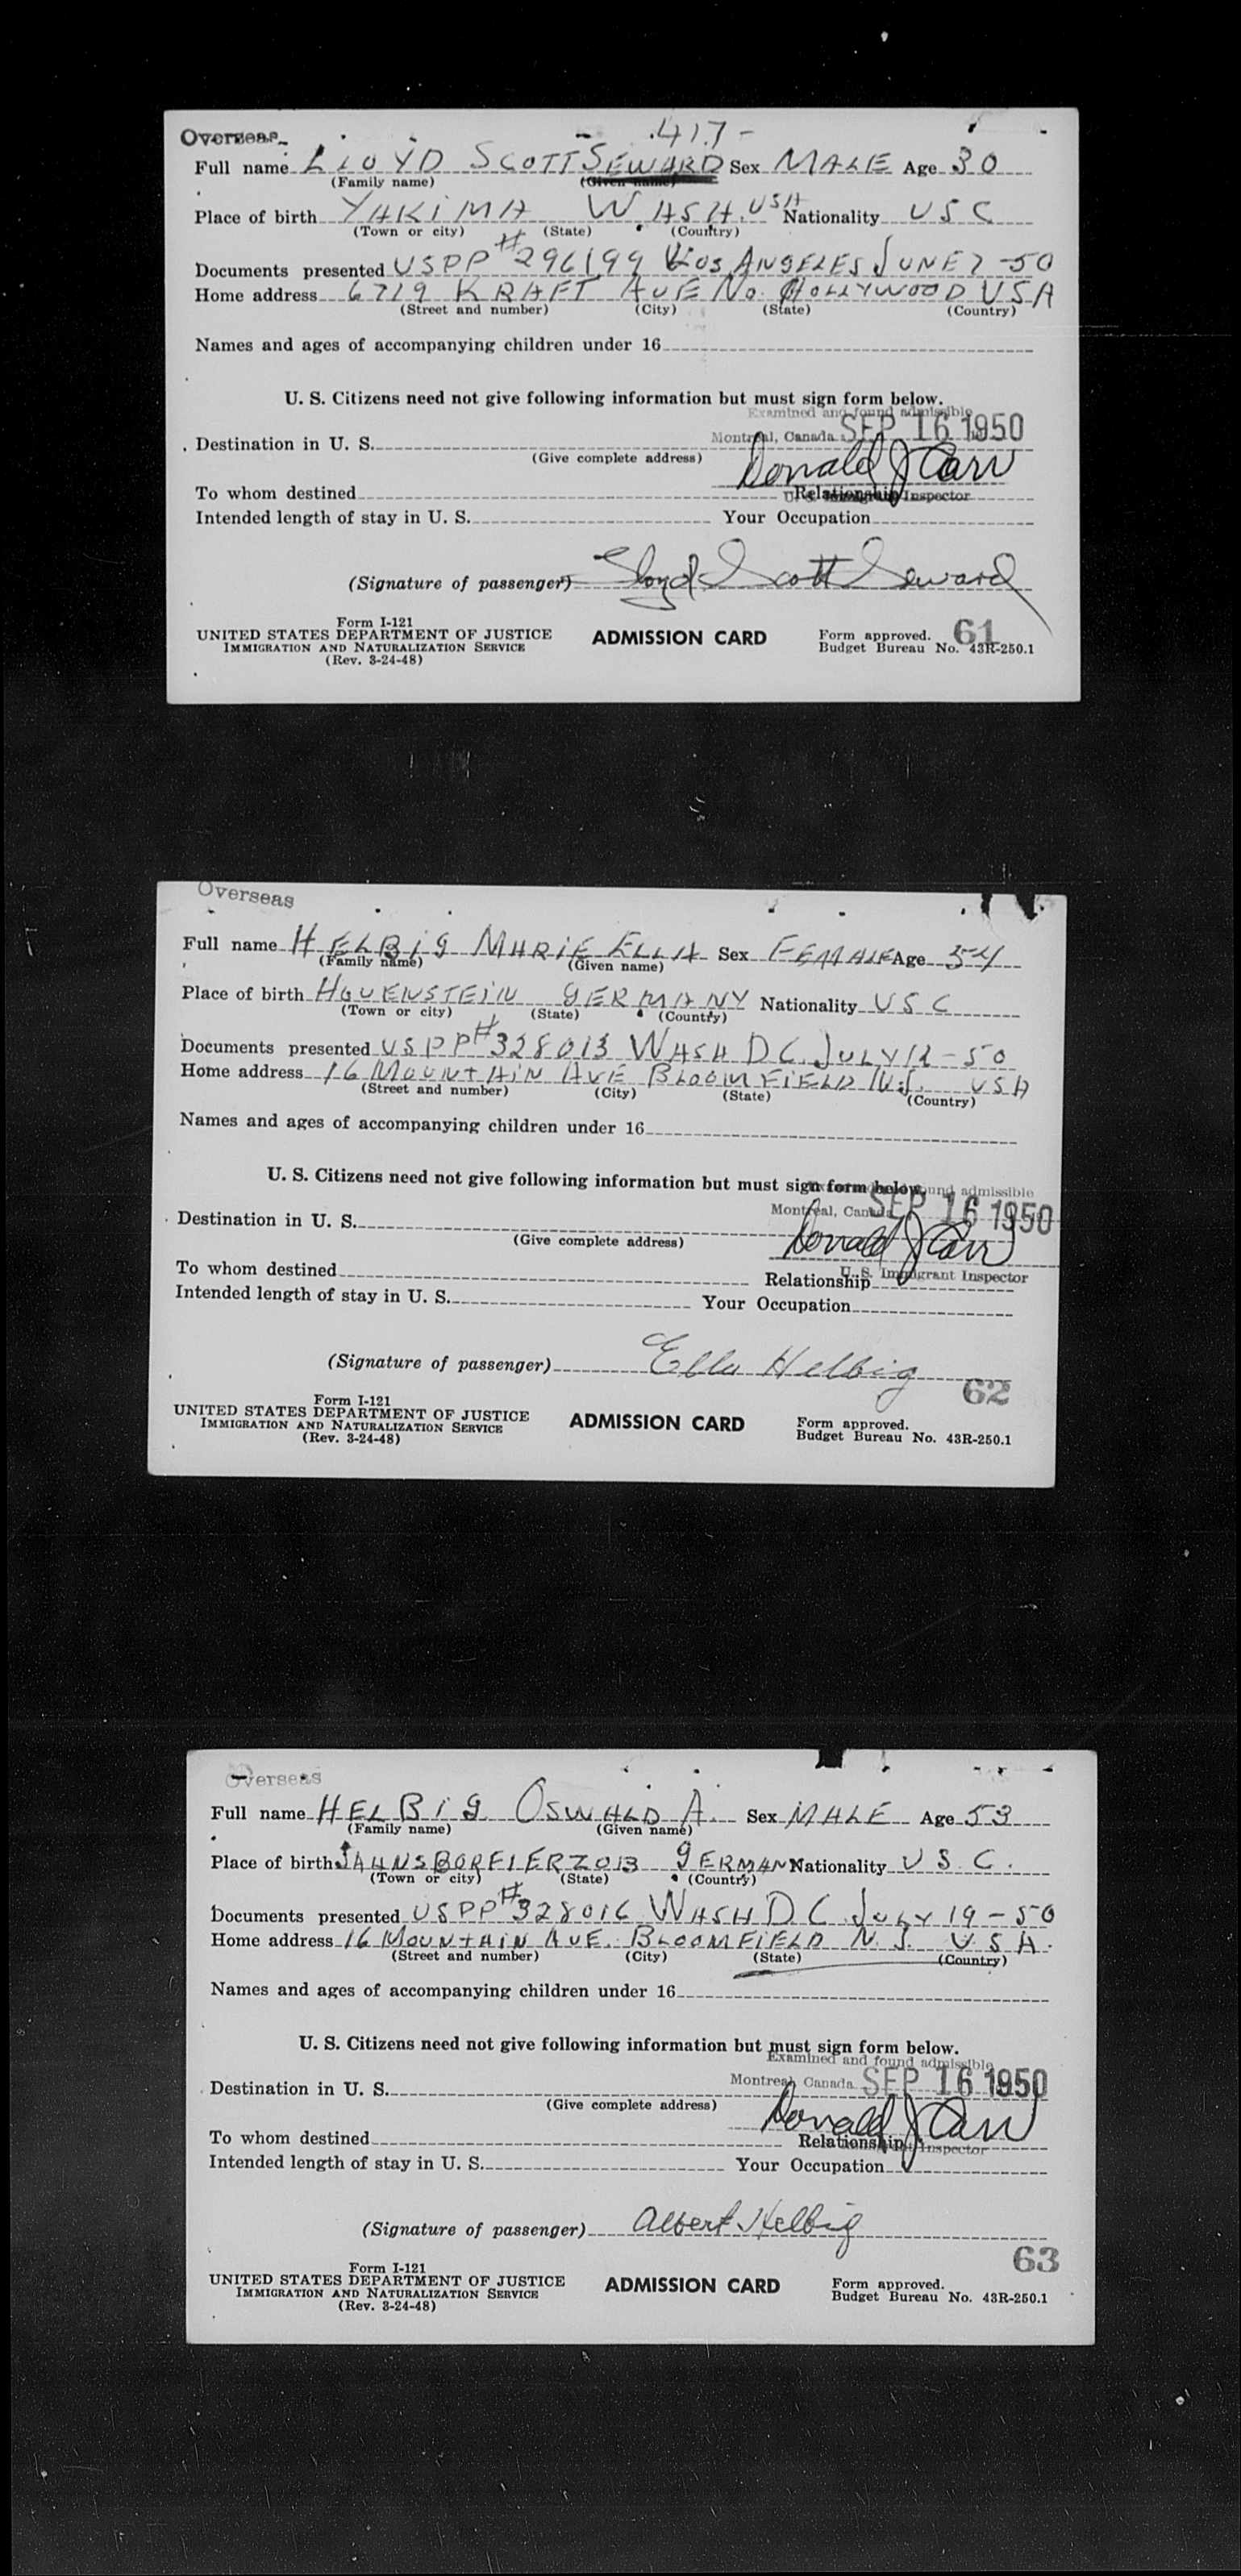 Overseas
417-
Full name LLOYD SCOTT SEWARD Sex MALE Age 30
(Family name) (Given name)
Place of birth YAKIMA WASH. USA Nationality USC
(Town or city) (State) (Country)
Documents presented USPP #296199 LOS ANGELES JUNE 7-50
Home address 6719 KRAFT AVE No. HOLLYWOOD USA
(Street and number) (City) (State) (Country)
Names and ages of accompanying children under 16
U. S. Citizens need not give following information but must sign form below.
Examined and found admissible
Destination in U. S. Montreal, Canada SEP 16 1950
(Give complete address) Donald J Carr
To whom destined Relationship U. S. Immigrant Inspector
Intended length of stay in U. S. Your Occupation
(Signature of passenger) Lloyd Scott Seward
Form I-121
UNITED STATES DEPARTMENT OF JUSTICE ADMISSION CARD Form approved. 61
IMMIGRATION AND NATURALIZATION SERVICE Budget Bureau No. 43R-250.1
(Rev. 3-24-48)
Overseas
Full name HELBIG MARIE ELLA Sex FEMALE Age 54
(Family name) (Given name)
Place of birth HOUENSTEIN GERMANY Nationality USC
(Town or city) (State) (Country)
Documents presented USPP #328013 WASH DC. JULY 12-50
Home address 16 MOUNTAIN AVE BLOOMFIELD N.J. USA
(Street and number) (City) (State) (Country)
Names and ages of accompanying children under 16
U. S. Citizens need not give following information but must sign form below.
found admissible
Destination in U. S. Montreal, Canada SEP 16 1950
(Give complete address) Donald J Carr
To whom destined Relationship U. S. Immigrant Inspector
Intended length of stay in U. S. Your Occupation
(Signature of passenger) Ella Helbig
62
Form I-121
UNITED STATES DEPARTMENT OF JUSTICE ADMISSION CARD Form approved.
IMMIGRATION AND NATURALIZATION SERVICE Budget Bureau No. 43R-250.1
(Rev. 3-24-48)
Overseas
Full name HELBIG OSWALD A. Sex MALE Age 53
(Family name) (Given name)
Place of birth GERMAN Nationality U S C.
(Town or city) (State) (Country)
Documents presented USPP #328016 WASH D.C JULY 19-50
Home address 16 MOUNTAIN AVE. BLOOMFIELD N. J. U S A.
(Street and number) (City) (State) (Country)
Names and ages of accompanying children under 16
U. S. Citizens need not give following information but must sign form below.
Examined and found admissible
Destination in U. S. Montreal, Canada SEP 16 1950
(Give complete address) Donald J Carr
To whom destined Relationship Inspector
Intended length of stay in U. S. Your Occupation
(Signature of passenger) Albert Helbig
63
Form I-121
UNITED STATES DEPARTMENT OF JUSTICE ADMISSION CARD Form approved.
IMMIGRATION AND NATURALIZATION SERVICE Budget Bureau No. 43R-250.1
(Rev. 3-24-48)